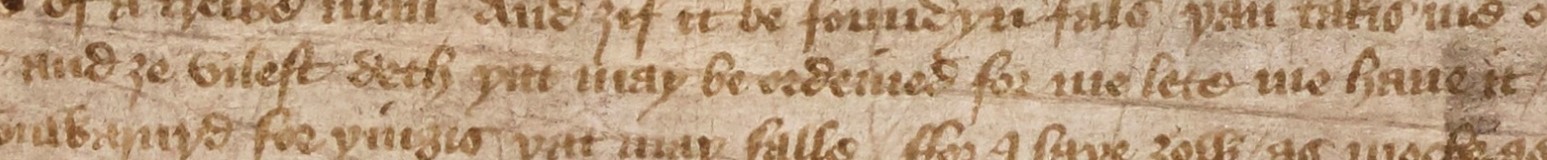 of a man And ȝif it be foundyn fals yan takis me
and ȝe vilest deth yat may be ordeined for me lete me haue it
for yingis yat may falle ffor I saye ȝow as moche as